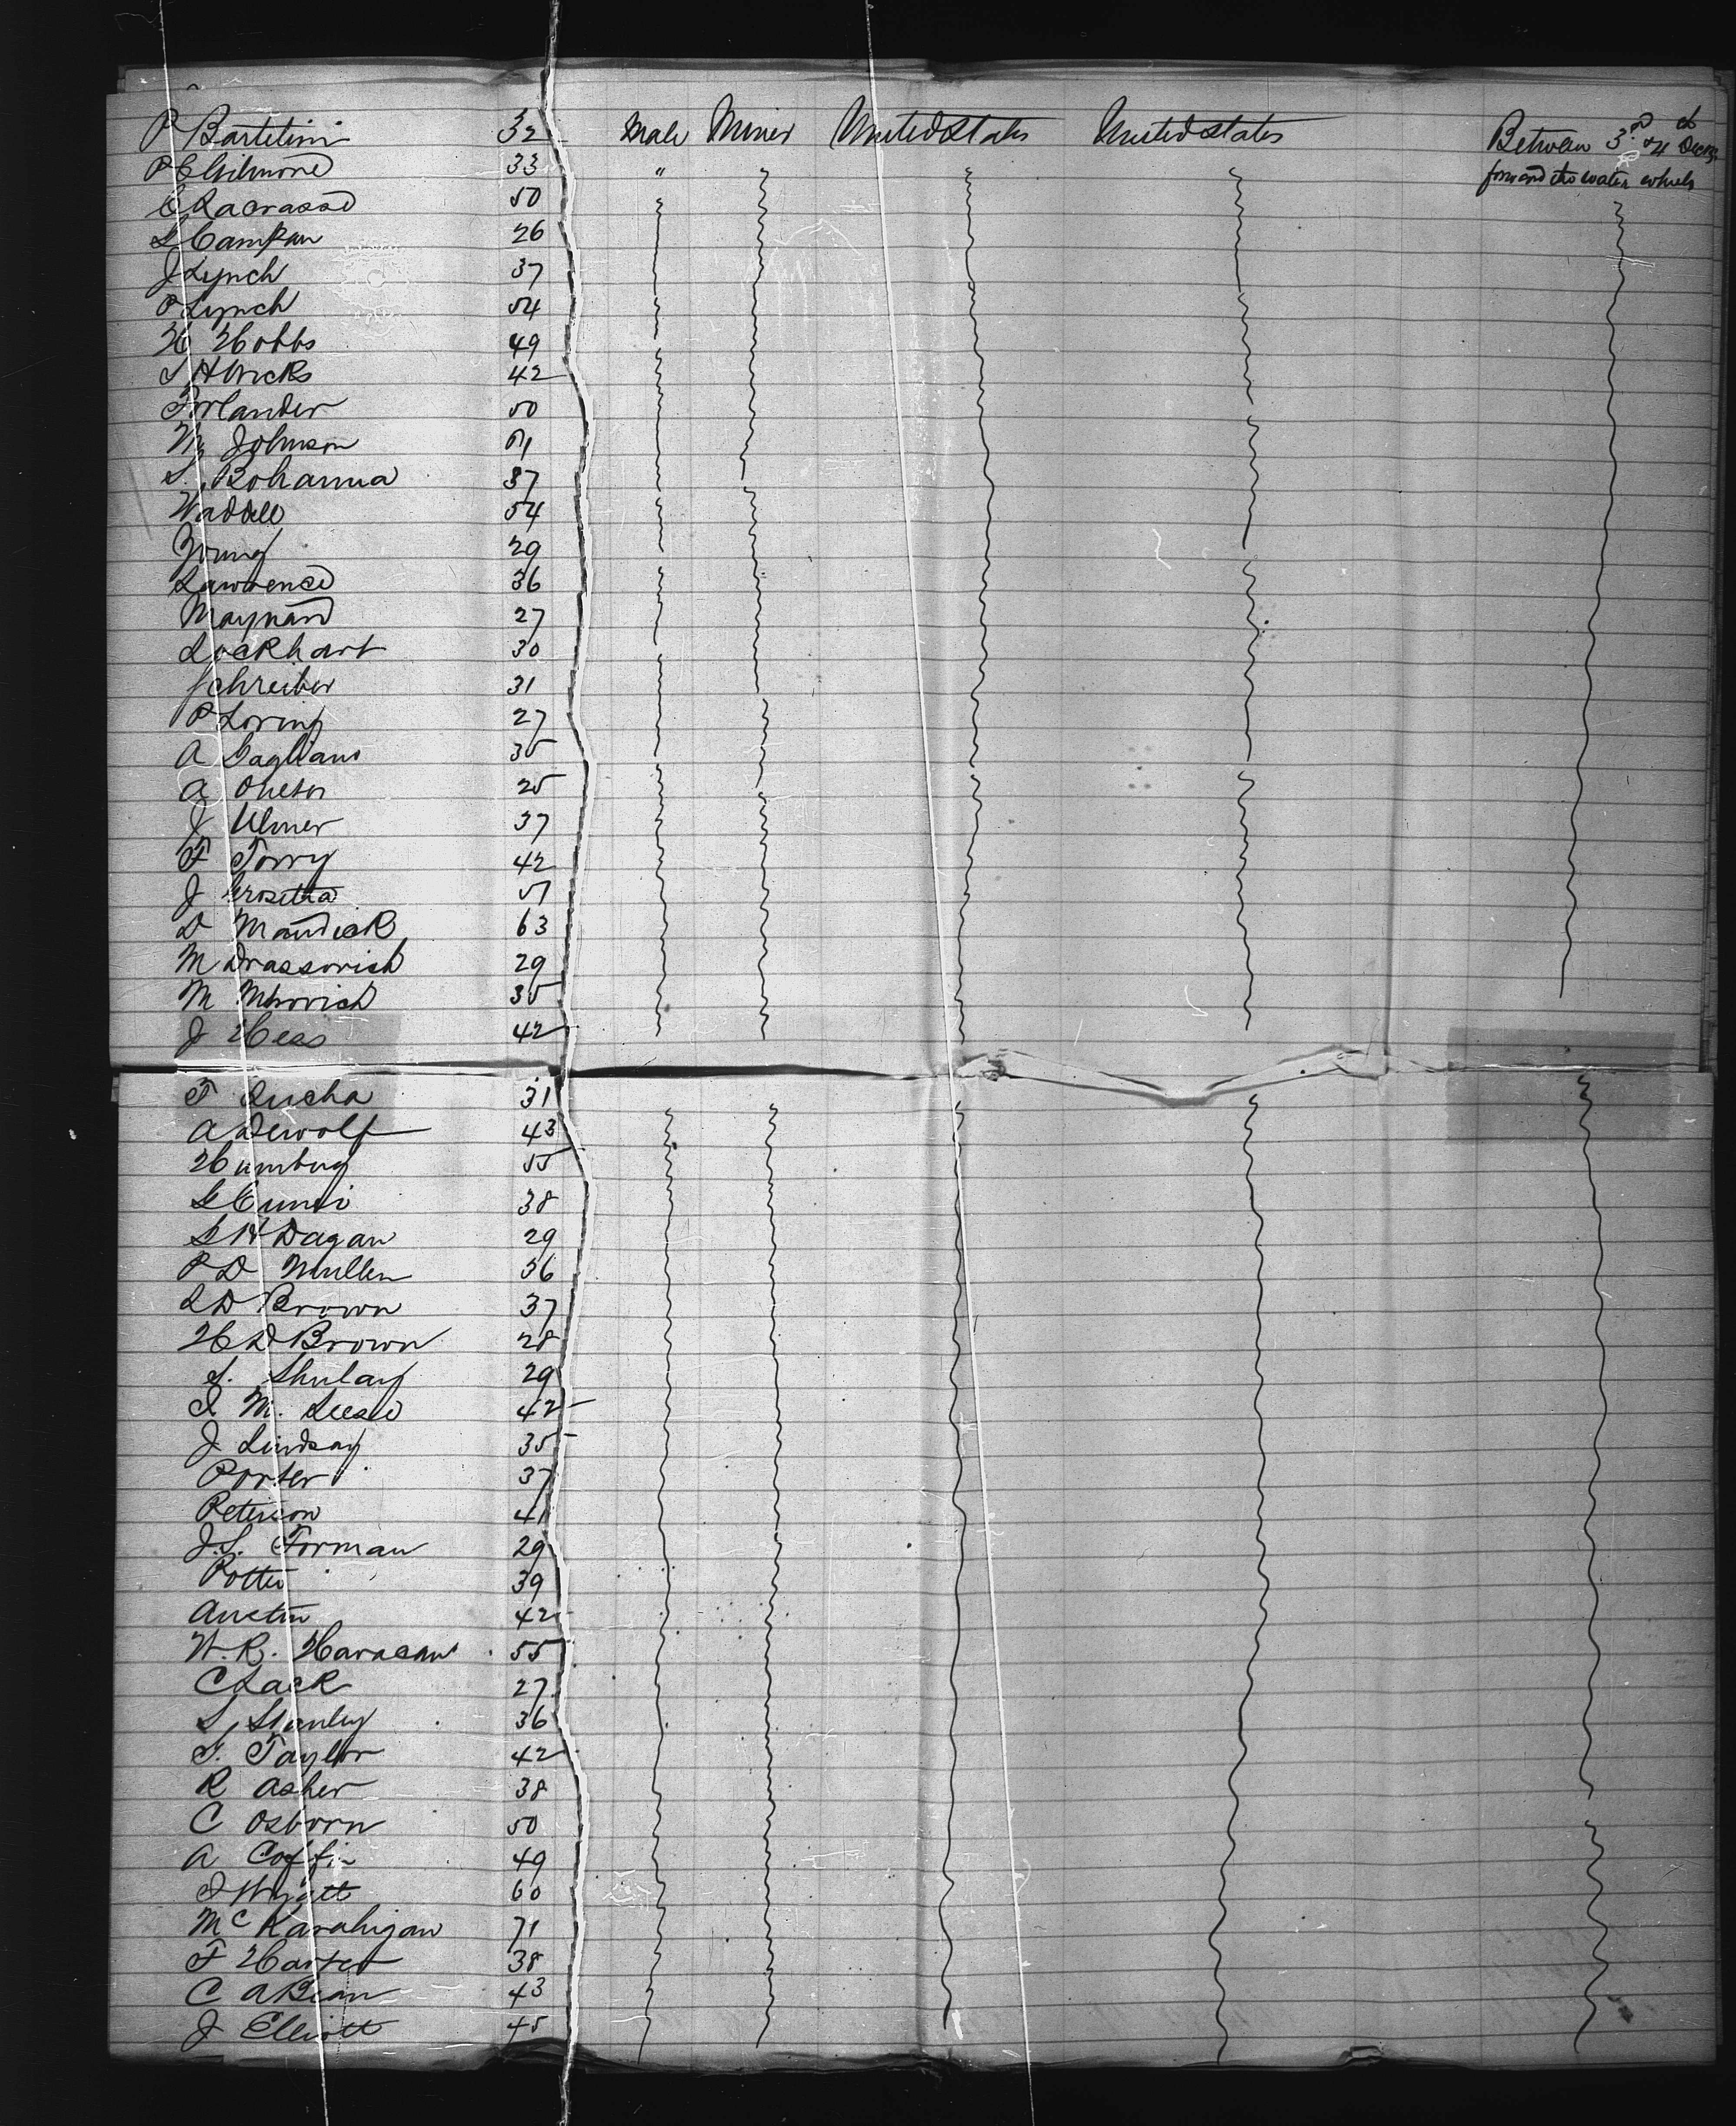 P Bartelini 32 Male Miner United States United States Between 3rd & 4 Decks
P C Gilmore 33 " forward the water wheels
C Lacrasse 50
L Campau 26
J Lynch 37
P Lynch 54
H Hobbs 49
S H Wicks 42
50
M Johnson
S. Bohanna 37
Waddell 54
Young 29
Lawrence 36
Maynard 27
Lockhart 30
Schreiber 31
P Loring 27
A Gagliano 35
A Oneto 25
J Ulmer 37
F Torry 42
J Grosetta 51
D Mandick 63
M Drassovich 29
M 35
J Hess 42
F Lucha 31
A Dewolf 43
Humbug 55
L Cuneo 38
L H Dagan 29
P D Mullen 36
L D Brown 37
H D Brown 28
S. 29
I M. Leese 42
J Lindsay 35
Porter 37
Peterson 41
J. S. Forman 29
Potter 39
Austin 42
W. R. 55
C Lack 27
S Stanley 36
F. Taylor 42
R Asher 38
C Osborn 50
A Coffin 49
I Wyatt 60
Mc Karahigan 71
F Harter 38
C A Bean 43
J Elliott 45